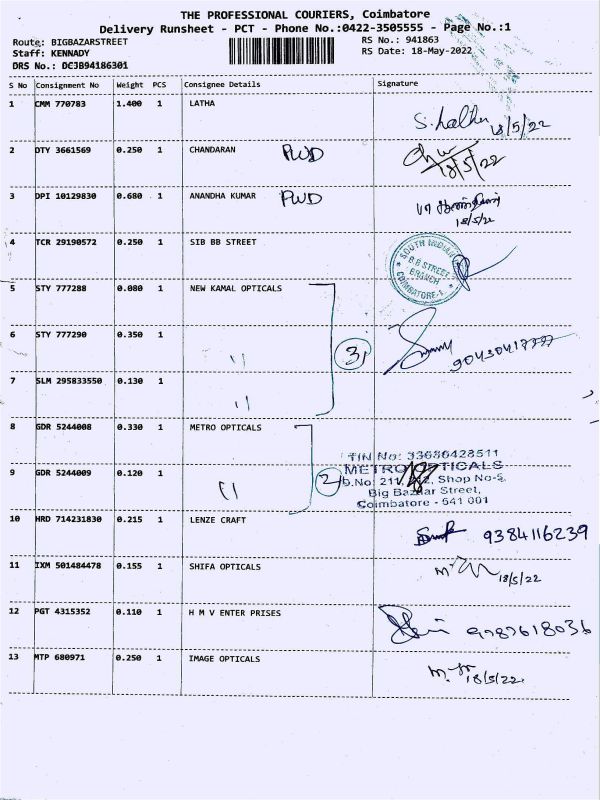 THE PROFESSIONAL COURIERS, Coimbatore
Delivery Runsheet - PCT - Phone No.:0422-3505555 - Page No.:1
Route: BIGBAZARSTREET RS No.: 941863
Staff: KENNADY RS Date: 18-May-2022
DRS No.: DCJB94186301
S No Consignment No Weight PCS Consignee Details Signature
1 CMM 770783 1.400 1 LATHA
18/5/22
2 DTY 3661569 0.250 1 CHANDARAN PWD
18/5/22
3 DPI 10129830 0.680 1 ANANDHA KUMAR PWD
18/5/22
4 TCR 29190572 0.250 1 SIB BB STREET
SOUTH INDIAN
B.B STREET
BRANCH
COIMBATORE-1
5 STY 777288 0.080 1 NEW KAMAL OPTICALS
6 STY 777290 0.350 1 " 3
7 SLM 295833550 0.130 1 "
8 GDR 5244008 0.330 1 METRO OPTICALS
TIN No: 33686428511
METRO OPTICALS
9 GDR 5244009 0.120 1 " 2
D.No: 211, Shop No-5,
Big Bazaar Street,
Coimbatore - 641 001
10 HRD 714231830 0.215 1 LENZE CRAFT 9384116239
11 IXM 501484478 0.155 1 SHIFA OPTICALS
18/5/22
12 PGT 4315352 0.110 1 H M V ENTER PRISES 9787618036
13 MTP 680971 0.250 1 IMAGE OPTICALS
18/5/22